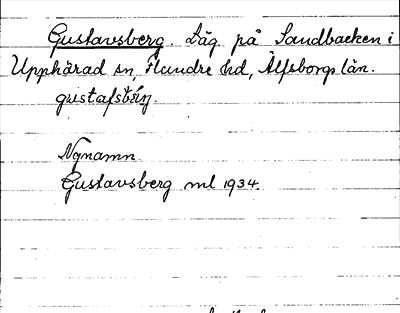 Gustavsberg. Låg på Sandbacken i
Upphärad sn, Flundre hd, Älfsborgs län.
gustafsbärj.
Nynamn.
Gustavsberg ml 1934.